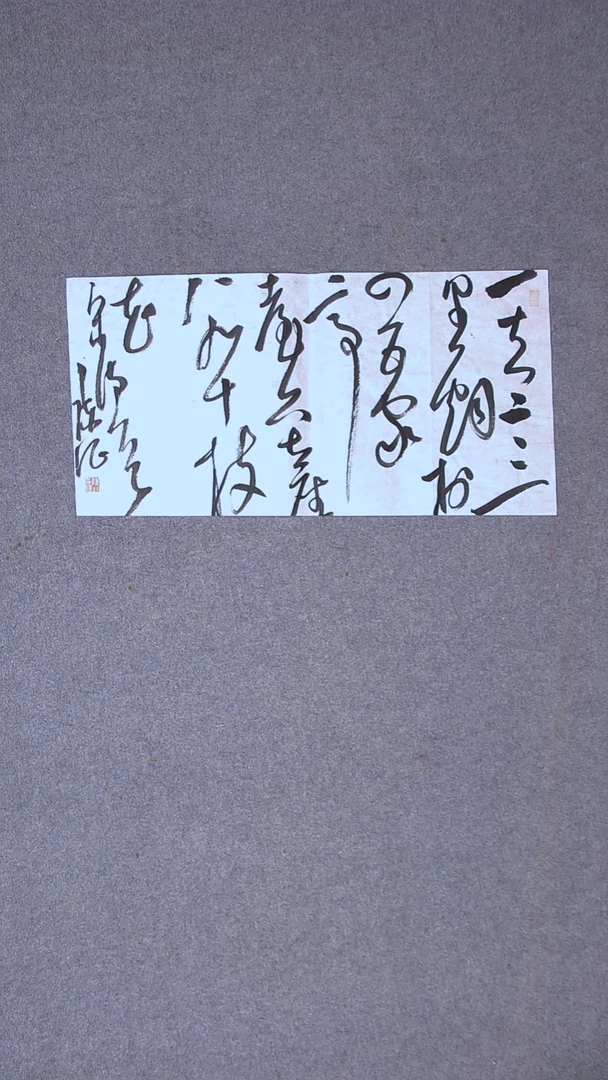 一去二三
里烟村
四五家
亭
台六七座
八九十枝
花